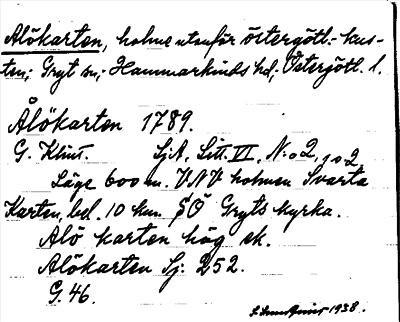 Alökarten, holme utanför östergötl:- kus-
ten; Gryt sn; Hammarkinds hd; Östergötl. l.
Ålökarten 1789.
G. Klint. SjA, Litt. VI, N:o 2, 1 o 2.
Läge 600 m. VNV holmen Svarta
Karten, bel. 10 km. SÖ Gryts kyrka.
Alö karten hög ek.
Alökarten Sj. 252.
G. 46.
1938.